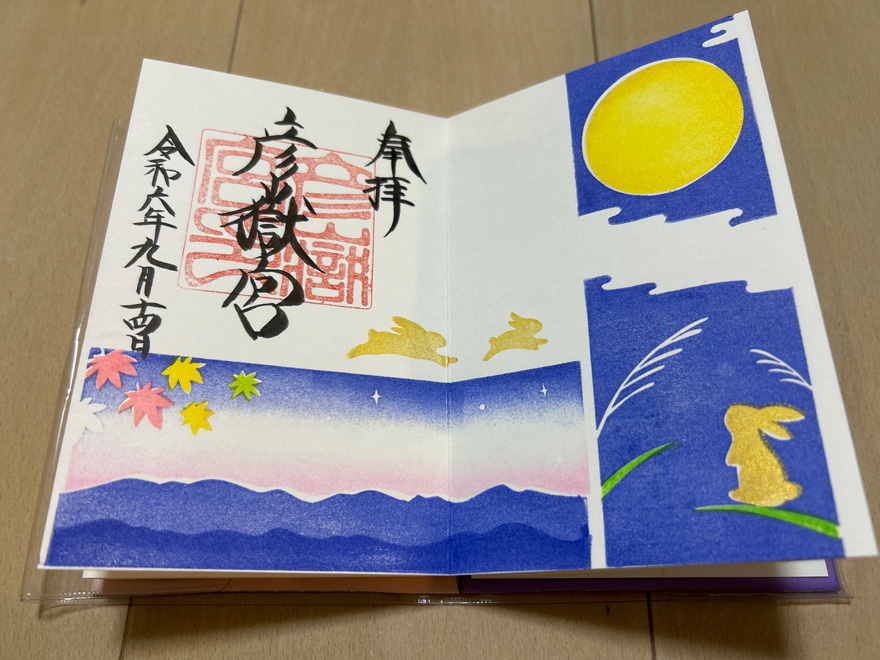 奉拝
彦嶽宮
令和六年九月十四日